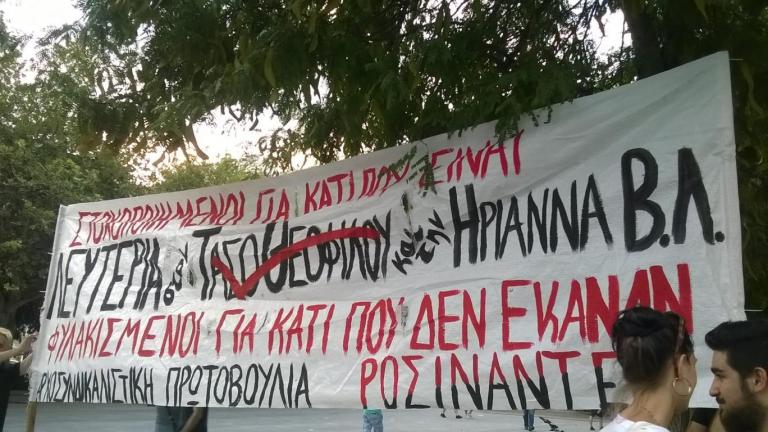 ΣΤΟΧΟΠΟΙΗΜΕΝΟΙ ΓΙΑ ΚΑΤΙ ΠΟΥ ΕΙΝΑΙ
ΛΕΥΤΕΡΙΑ ΤΑΣΟ ΘΕΟΦΙΛΟΥ και την ΗΡΙΑΝΝΑ Β.Λ.
ΦΥΛΑΚΙΣΜΕΝΟΙ ΓΙΑ ΚΑΤΙ ΠΟΥ ΔΕΝ ΕΚΑΝΑΝ
ΑΡΧΟΣΥΝΔΙΚΑΛΙΣΤΙΚΗ ΠΡΩΤΟΒΟΥΛΙΑ ΡΟΣΙΝΑΝΤΕ